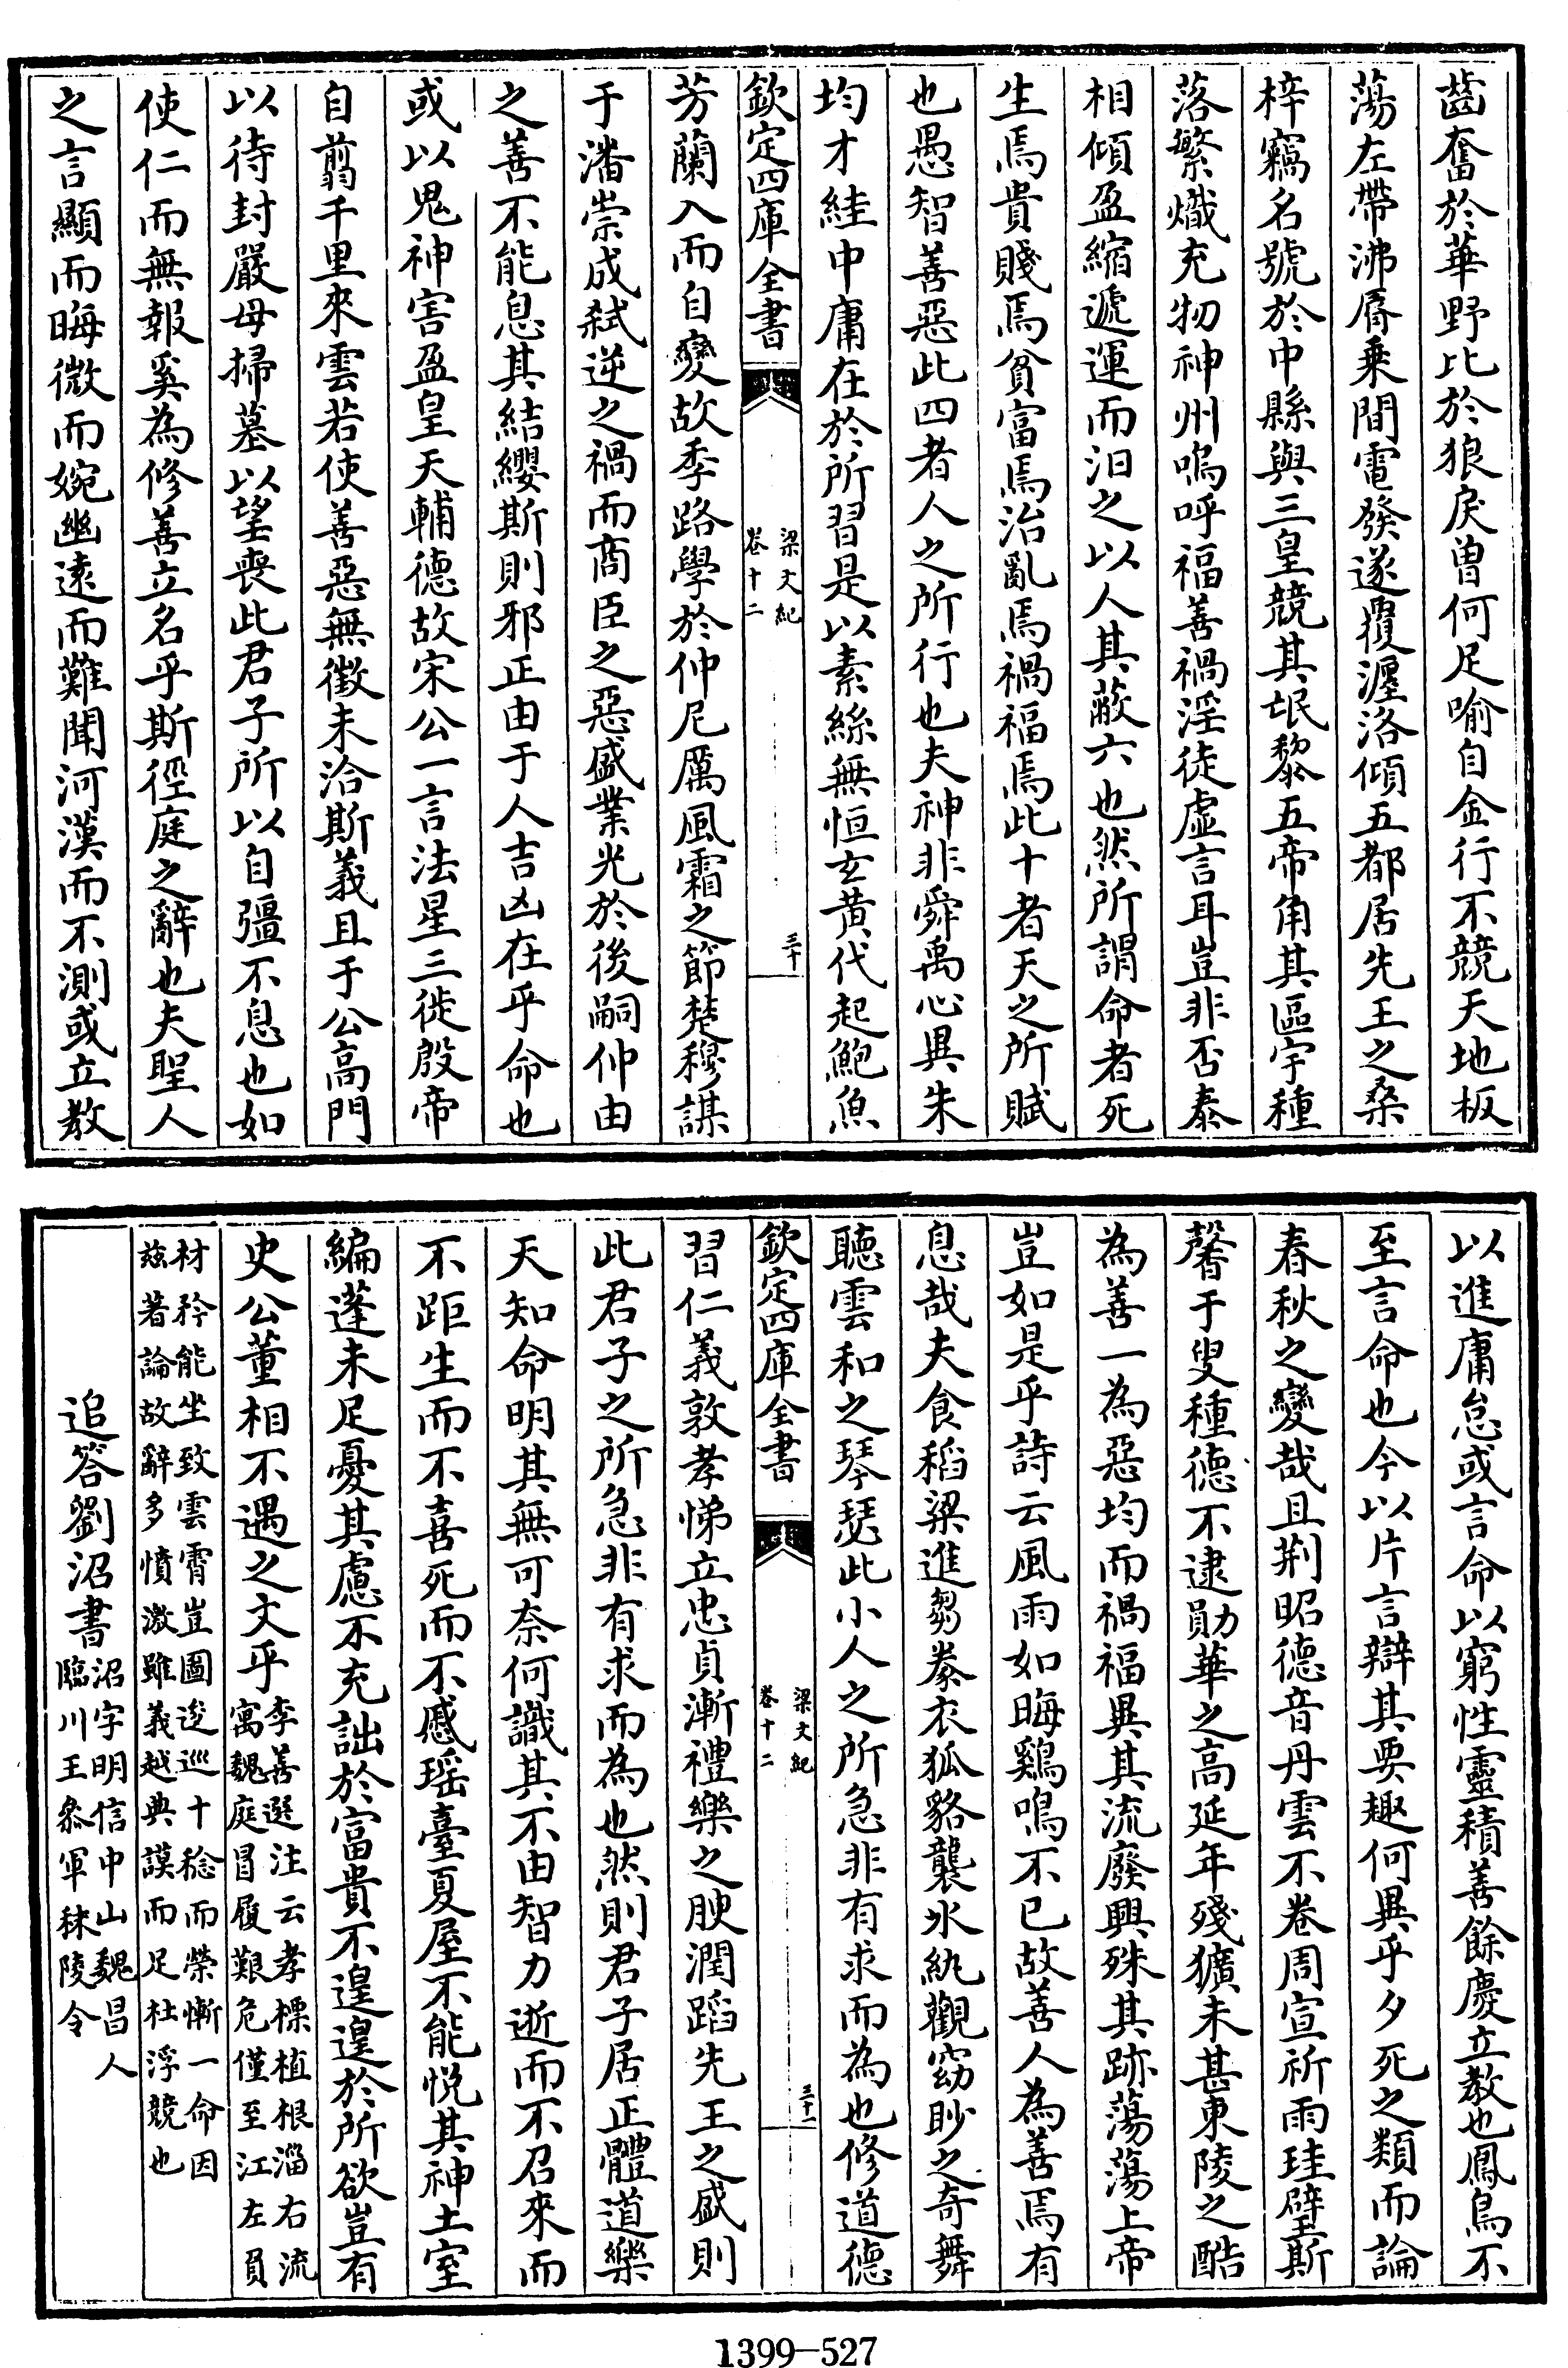 齒奮於華野比於狼戾曽何足喻自金行不競天地板
蕩左帶沸脣乗間電發遂覆瀍洛傾五都居先王之桑
梓竊名號於中縣與三皇競其氓黎五帝角其區宇種
落繁熾充牣神州嗚呼福善禍淫徒虛言耳豈非否泰
相傾盈縮遞運而汩之以人其蔽六也然所謂命者死
生焉貴賤焉貧富焉治亂焉禍福焉此十者天之所賦
也愚智善惡此四者人之所行也夫神非舜禹心異朱
均才絓中庸在於所習是以素絲無恒玄黃代起鮑魚
欽定四庫全書
梁文紀
卷十二
三十
芳蘭入而自變故季路學於仲尼厲風霜之節楚穆謀
于潘崇成弒逆之禍而商臣之惡盛業光於後嗣仲由
之善不能息其結纓斯則邪正由于人吉凶在乎命也
或以鬼神害盈皇天輔德故宋公一言法星三徙殷帝
自翦千里來雲若使善惡無徵未洽斯義且于公高門
以待封嚴母掃墓以望喪此君子所以自彊不息也如
使仁而無報奚為修善立名乎斯徑庭之辭也夫聖人
之言顯而晦微而婉幽逺而難聞河漢而不測或立教
以進庸怠或言命以窮性靈積善餘慶立教也鳳鳥不
至言命也今以片言辯其要趣何異乎夕死之類而論
春秋之變哉且荆昭德音丹雲不卷周宣祈雨珪璧斯
罄于叟種德不逮勛華之高延年殘獷未甚東陵之酷
為善一為惡均而禍福異其流廢興殊其跡蕩蕩上帝
豈如是乎詩云風雨如晦鷄鳴不已故善人為善焉有
息哉夫食稻粱進芻豢衣狐貉襲氷紈觀窈眇之奇舞
聽雲和之琴瑟此小人之所急非有求而為也修道德
欽定四庫全書
梁文紀
卷十二
三十一
習仁義敦孝悌立忠貞漸禮樂之腴潤蹈先王之盛則
此君子之所急非有求而為也然則君子居正體道樂
天知命明其無可奈何識其不由智力逝而不召來而
不距生而不喜死而不慼瑶臺夏屋不能悅其神土室
編蓬未足憂其慮不充詘於富貴不遑遑於所欲豈有
史公董相不遇之文乎李善選注云孝標植根淄右流
寓魏庭冒履艱危僅至江左員
材矜能坐致雲霄豈圖逡巡十稔而榮慚一命因
兹著論故辭多憤激雖義越典謨而足杜浮競也
追答劉沼書沼字明信中山魏昌人
臨川王叅軍秣陵令
1399—527